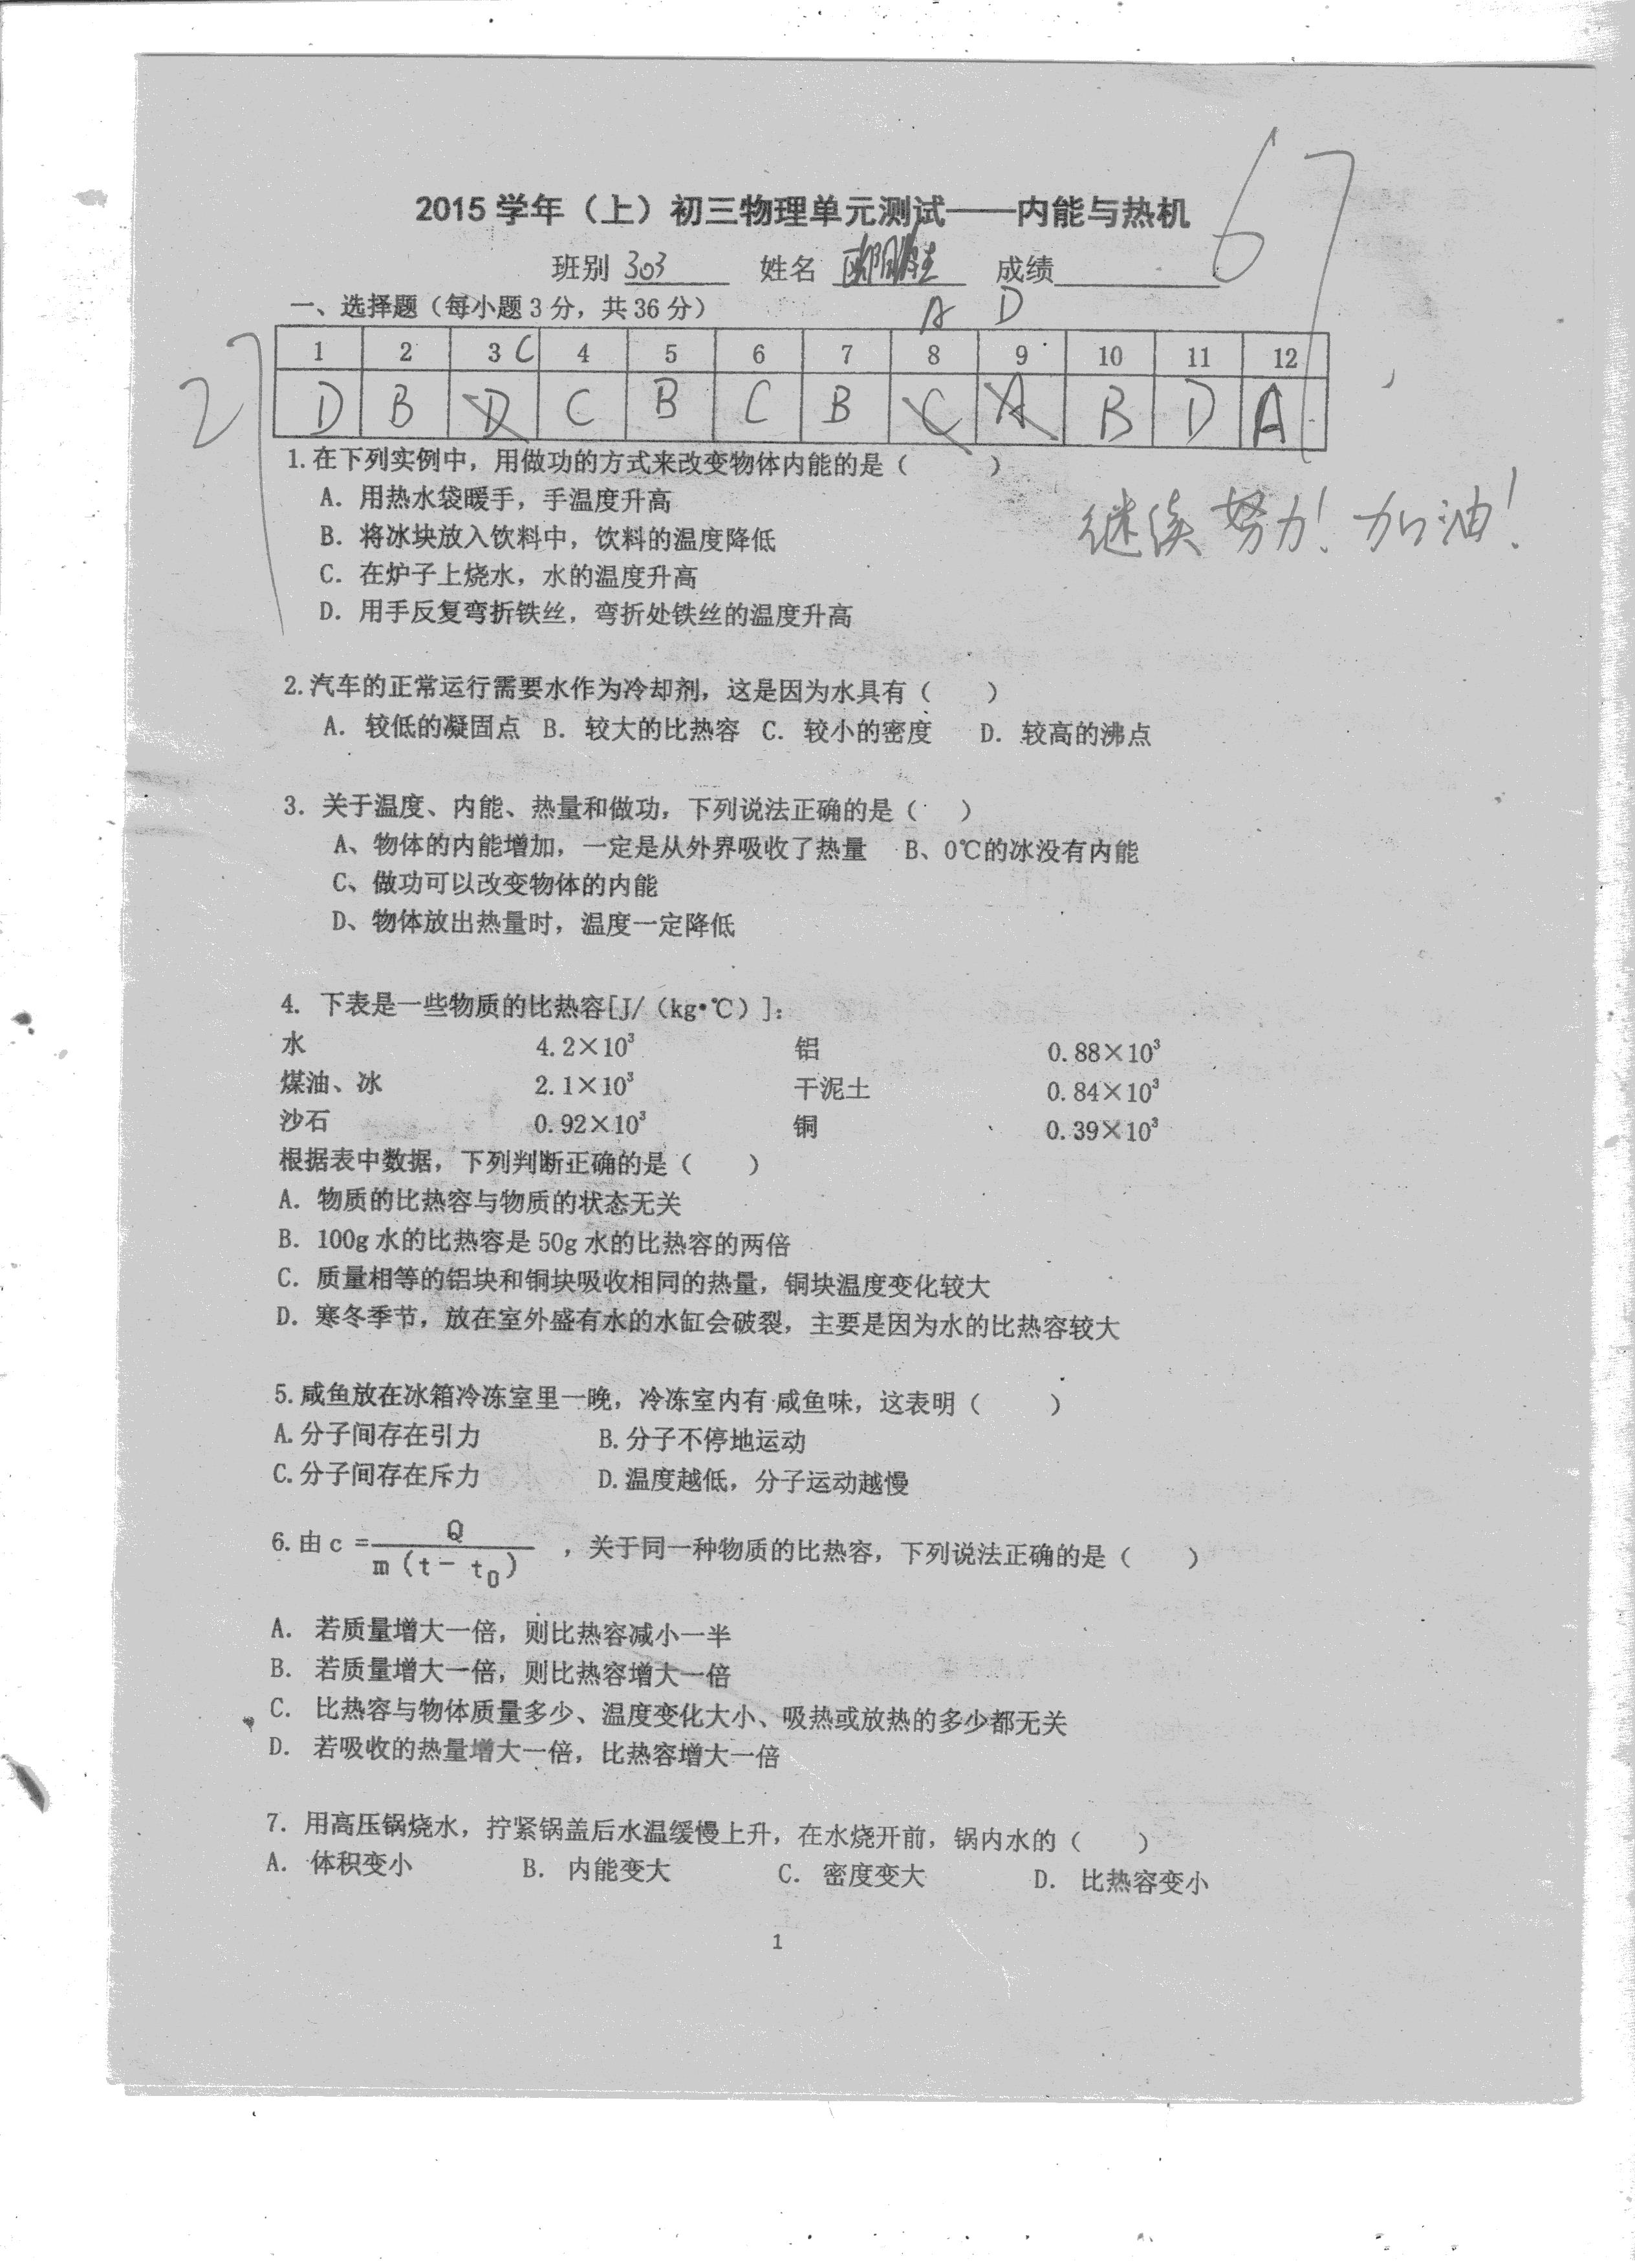 67
2015 学年（上）初三物理单元测试——内能与热机
班别 303 姓名 成绩
一、选择题（每小题 3 分，共 36 分）
A D
1 2 3 C 4 5 6 7 8 9 10 11 12
27
D B D C B C B C A B D A
1.在下列实例中，用做功的方式来改变物体内能的是（ ）
A. 用热水袋暖手，手温度升高
继续努力！加油！
B. 将冰块放入饮料中，饮料的温度降低
C. 在炉子上烧水，水的温度升高
D. 用手反复弯折铁丝，弯折处铁丝的温度升高
2.汽车的正常运行需要水作为冷却剂，这是因为水具有（ ）
A. 较低的凝固点 B. 较大的比热容 C. 较小的密度 D. 较高的沸点
3. 关于温度、内能、热量和做功，下列说法正确的是（ ）
A、物体的内能增加，一定是从外界吸收了热量 B、0℃的冰没有内能
C、做功可以改变物体的内能
D、物体放出热量时，温度一定降低
4. 下表是一些物质的比热容[J/（kg•℃）]：
水 4.2×10³ 铝 0.88×10³
煤油、冰 2.1×10³ 干泥土 0.84×10³
沙石 0.92×10³ 铜 0.39×10³
根据表中数据，下列判断正确的是（ ）
A. 物质的比热容与物质的状态无关
B. 100g 水的比热容是 50g 水的比热容的两倍
C. 质量相等的铝块和铜块吸收相同的热量，铜块温度变化较大
D. 寒冬季节，放在室外盛有水的水缸会破裂，主要是因为水的比热容较大
5.咸鱼放在冰箱冷冻室里一晚，冷冻室内有咸鱼味，这表明（ ）
A.分子间存在引力 B.分子不停地运动
C.分子间存在斥力 D.温度越低，分子运动越慢
6.由 c = Q / m（t－t₀） ，关于同一种物质的比热容，下列说法正确的是（ ）
A. 若质量增大一倍，则比热容减小一半
B. 若质量增大一倍，则比热容增大一倍
C. 比热容与物体质量多少、温度变化大小、吸热或放热的多少都无关
D. 若吸收的热量增大一倍，比热容增大一倍
7. 用高压锅烧水，拧紧锅盖后水温缓慢上升，在水烧开前，锅内水的（ ）
A. 体积变小 B. 内能变大 C. 密度变大 D. 比热容变小
1